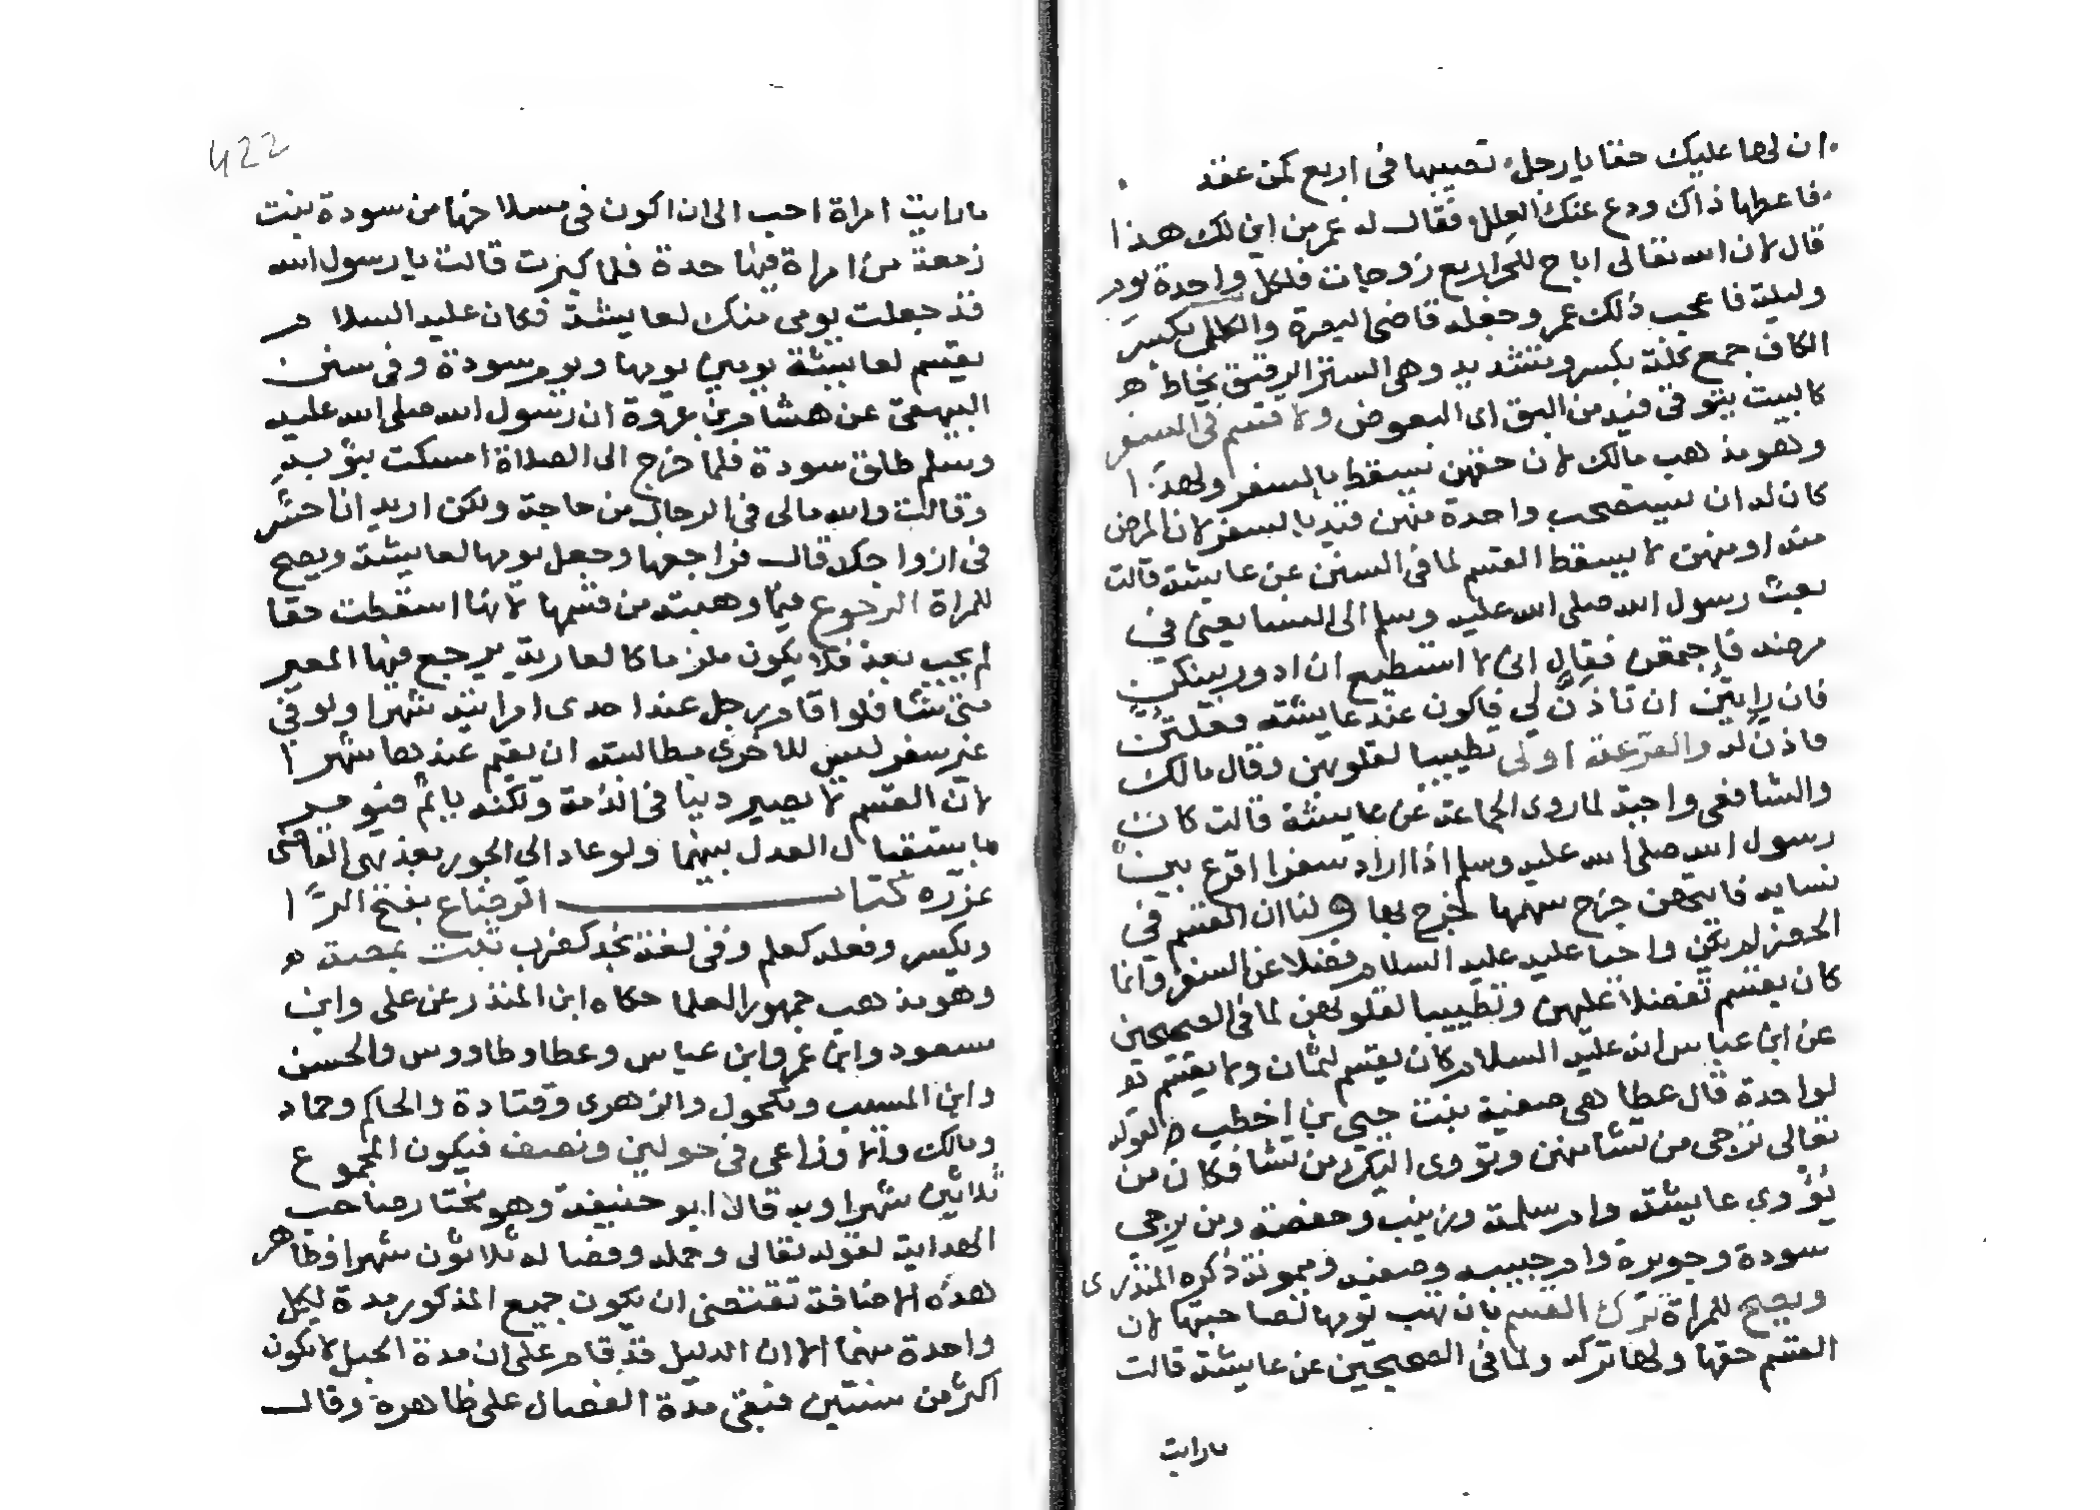 ان لها عليك حقا يا رجل تصيبها في اربع لمن عقل
فاعطها ذاك ودع عنك العلل فقال له عمر من اين لك هذا
قال لان الله تعالى اباح للحر اربع زوجات فلكل واحدة يوم
وليلة فاعجب ذلك عمر وجعله قاضى البصرة والكلل بكسر
الكاف جمع كلة بكسر وتشديد وهى الستر الرقيق يخاط
كالبيت يتوقى فيه من البق اى البعوض ولا قسم في السفر
وهو مذهب مالك لان حقهن تسقط بالسفر ولهذا
كان له ان يستصحب واحدة منهن قيد بالسفر لان المرض
منه او منهن لا يسقط القسم لما فى السنن عن عايشة قالت
بعث رسول الله صلى الله عليه وسلم الى النسا يعنى في
مرضه فاجتمعن فقال انى لا استطيع ان ادور بينكن
فان رايتن ان تاذن لي فاكون عند عايشة فعلتن
فاذن له والقرعة اولى تطييبا لقلوبهن وقال مالك
والشافعى واجبة لما روى الجماعة عن عايشة قالت كان
رسول الله صلى الله عليه وسلم اذا اراد سفرا اقرع بين
نسايه فايتهن خرج سهمها خرج بها ولنا ان القسم في
الحضر لم يكن واجبا عليه عليه السلام فضلا عن السفر وانما
كان يقسم تفضلا عليهن وتطييبا لقلوبهن لما فى الصحيحين
عن ابن عباس انه عليه السلام كان يقسم لثمان ولا يقسم
لواحدة قال عطا هى صفية بنت حيي بن اخطب لقوله
تعالى ترجى من تشا منهن وتووى اليك من تشا فكان من
يؤوي عايشة وام سلمة وزينب وحفصة ومن يرجى
سودة وجويرة وام حبيبة وصفية وميمونة ذكره المنذرى
ويصح للمراة ترك القسم بان تهب نوبها لصاحبتها لان
القسم حقها ولها تركه ولما فى الصحيحين عن عايشة قالت
ما رايت
422
ما رايت امراة احب الى ان اكون فى مسلاخها من سودة بنت
زمعة من امراة فيها حدة فلما كبرت قالت يا رسول الله
قد جعلت يومى منك لعايشة فكان عليه السلام
يقسم لعايشة يومين يومها ويوم سودة وفى سنن
البيهقى عن هشام بن عروة ان رسول الله صلى الله عليه
وسلم طلق سودة فلما خرج الى الصلاة امسكت بثوبه
وقالت والله مالى فى الرجال من حاجة ولكن اريد ان احشر
فى ازواجك قال فراجعها وجعل يومها لعايشة ويصح
للمراة الرجوع فيما وهبته من قسمها لانها اسقطت حقا
لم يجب بعد فلا يكون ملزما كالعارية يرجع فيها المعير
متى شا فلو اقام رجل عند احدى امراتيه شهرا ولو في
غير سفر ليس للاخرى مطالبته ان يقيم عندها شهرا
لان القسم لا يصير دينا فى الذمة ولكنه ياثم فيومر
باستقبال العدل بينهما ولو عاد الى الجور بعد نهى القاضى
عزره كتاب الرضاع بفتح الرا
ويكسر وفعله كعلم وفى لغة نجد كضرب تثبت بمصة
وهو مذهب جمهور العلما حكاه ابن المنذر عن على وابن
مسعود وابن عمر وابن عباس وعطا وطاووس والحسن
وابن المسيب ومكحول والزهرى وقتادة والحاكم وحماد
ومالك والاوزاعى فى حولين ونصف فيكون المجموع
ثلاثين شهرا وبه قال ابو حنيفة وهو مختار صاحب
الهداية لقوله تعالى وحمله وفصاله ثلاثون شهرا فظاهر
هذه الاضافة تقتضى ان يكون جميع المذكور مدة لكل
واحدة منهما الا ان الدليل قد قام على ان مدة الحبل لا يكون
اكثر من سنتين فتبقى مدة الفصال على ظاهره وقال